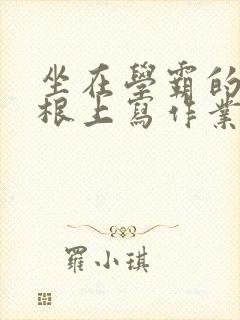 坐在學霸的
根上寫作業
羅小琪